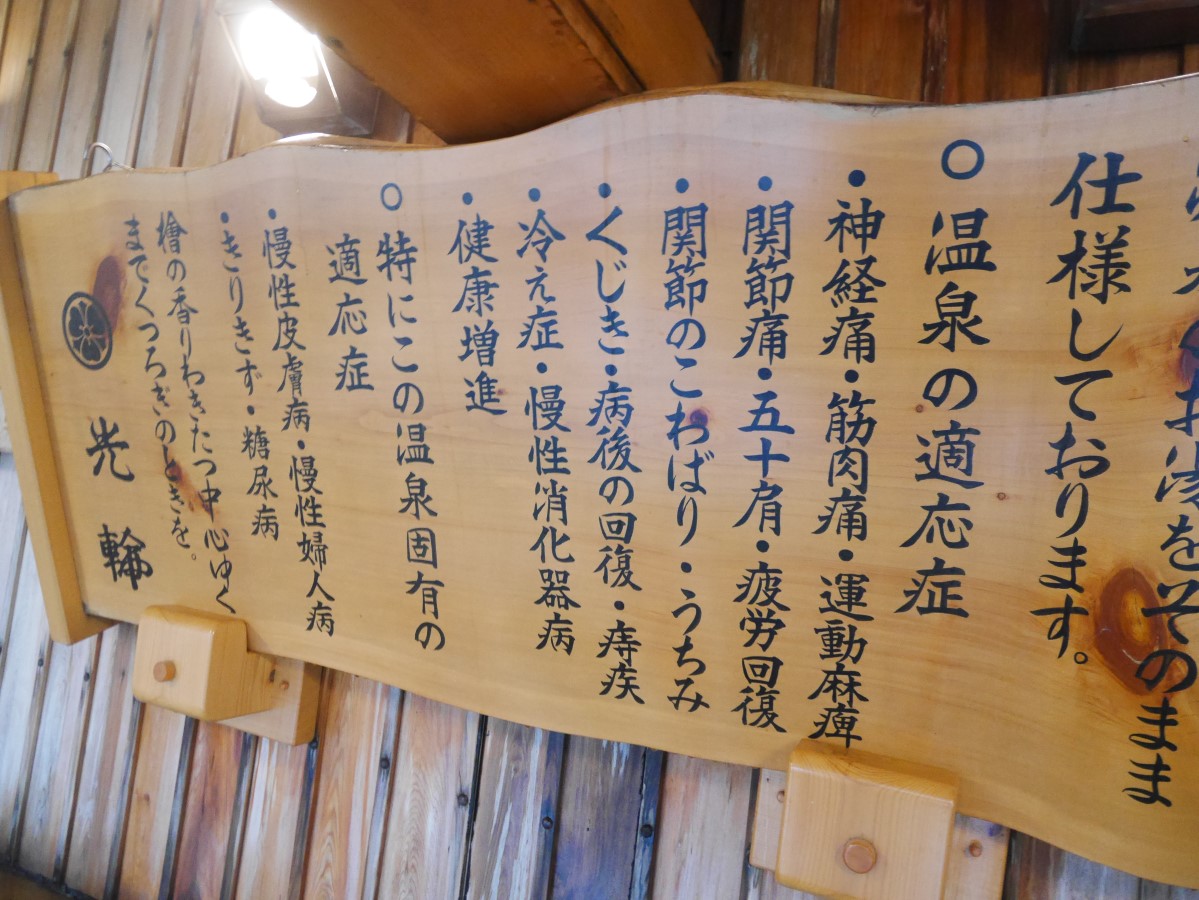 お湯をそのまま
仕様しております。
○温泉の適応症
・神経痛・筋肉痛・運動麻痺
・関節痛・五十肩・疲労回復
・関節のこわばり・うちみ
・くじき・病後の回復・痔疾
・冷え症・慢性消化器病
・健康増進
○特にこの温泉固有の
適応症
・慢性皮膚病・慢性婦人病
・きりきず・糖尿病
檜の香りわきたつ中心ゆく
までくつろぎのときを。
光輪